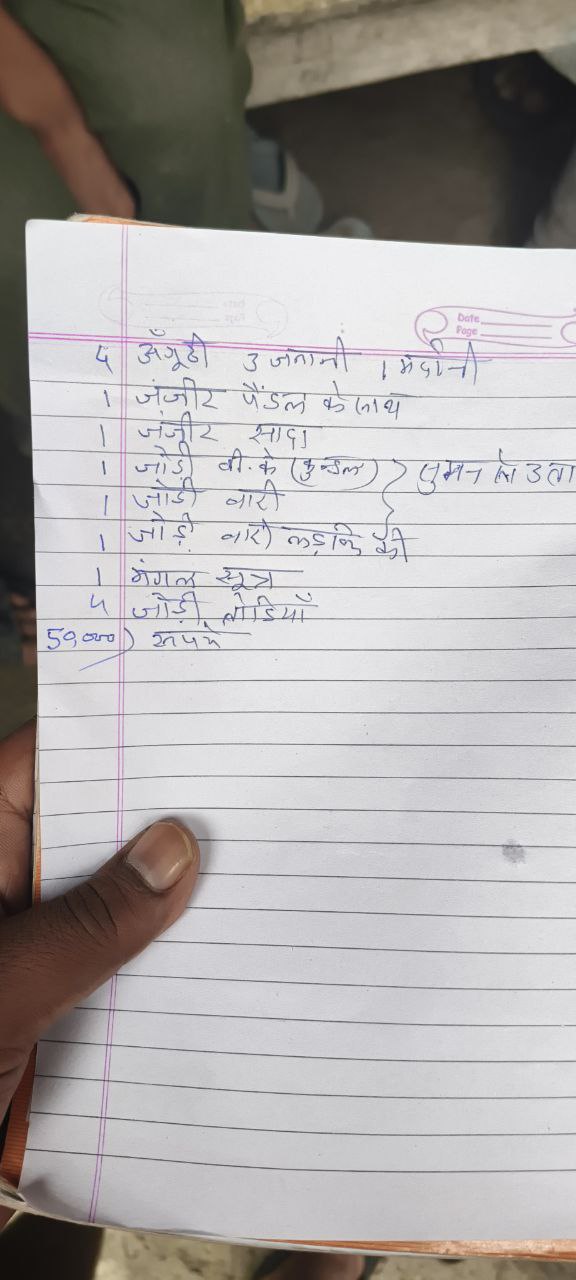 Date
Page
4 अँगूठी 3 जनानी 1 मर्दानी
1 जंजीर पैंडल के साथ
1 जंजीर सादा
1 जोड़ी बी.के (कुन्डल)
1 जोडी बारी
1 जोड़ी बारी लड़कि की
1 मंगल सूत्र
4 जोड़ी तोडियाँ
59,000) रूपये